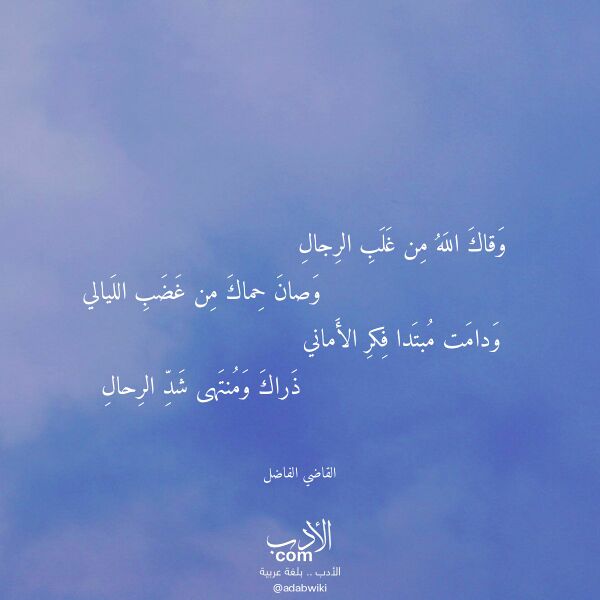 وَقاكَ اللَهُ مِن غَلَبِ الرِجالِ
وَصانَ حِماكَ مِن غَضَبِ اللَيالي
وَدامَت مُبتَدا فِكرِ الأَماني
ذَراكَ وَمُنتَهى شَدِّ الرِحالِ
القاضي الفاضل
الأدب
com
الأدب .. بلغة عربية
@adabwiki